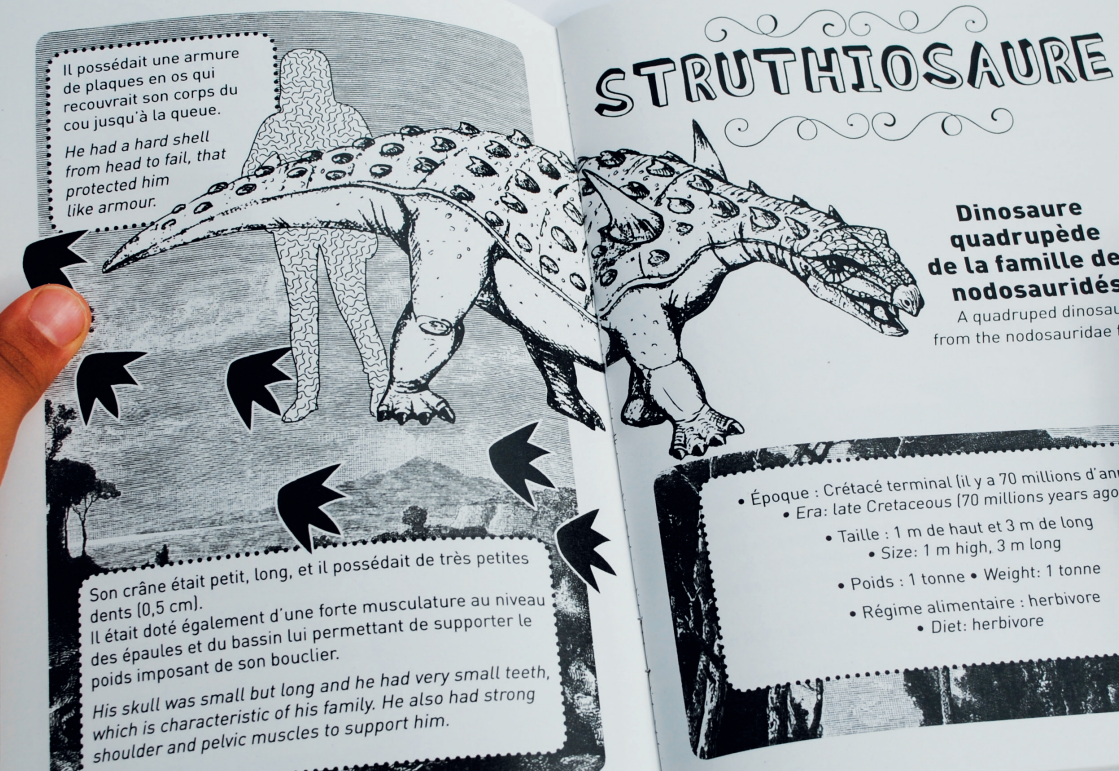 Il possédait une armure
de plaques en os qui
recouvrait son corps du
cou jusqu'à la queue.
He had a hard shell
from head to fail, that
protected him
like armour.
Son crâne était petit, long, et il possédait de très petites
dents (0,5 cm).
Il était doté également d'une forte musculature au niveau
des épaules et du bassin lui permettant de supporter le
poids imposant de son bouclier.
His skull was small but long and he had very small teeth,
which is characteristic of his family. He also had strong
shoulder and pelvic muscles to support him.
STRUTHIOSAURE
Dinosaure
quadrupède
de la famille de
nodosauridés
A quadruped
from the nodosauridae
• Époque : Crétacé terminal (il y a 70 millions
• Era: late Cretaceous (70 millions years ago
• Taille : 1 m de haut et 3 m de long
• Size: 1 m high, 3 m long
• Poids : 1 tonne • Weight: 1 tonne
• Régime alimentaire : herbivore
• Diet: herbivore